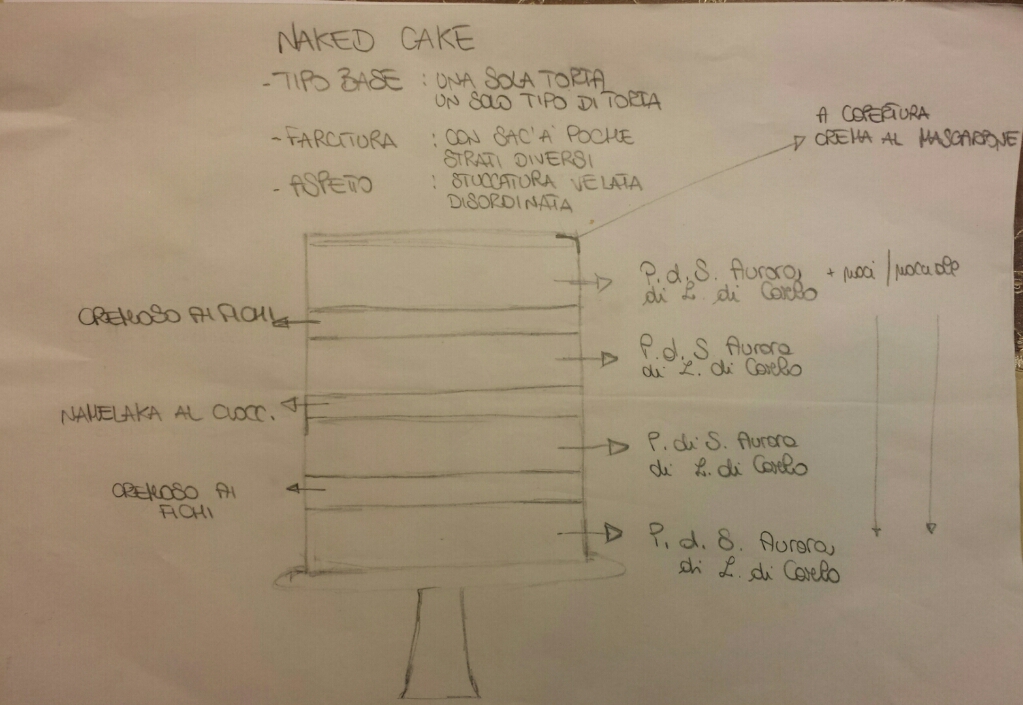 NAKED CAKE
- TIPO BASE : UNA SOLA TORTA
UN SOLO TIPO DI TORTA
- FARCITURA : CON SAC'A' POCHE
STRATI DIVERSI
- ASPETTO : STUCCATURA VELATA
DISORDINATA
A COPERTURA
CREMA AL MASCARPONE
P. d. S. Aurora, + noci / nocciole
di L. di Carlo
CREMOSO AI FICHI
P. d. S. Aurora
di L. di Carlo
NAMELAKA AL CIOCC.
P. di S. Aurora
di L. di Carlo
CREMOSO AI
FICHI
P. d. S. Aurora,
di L. di Carlo